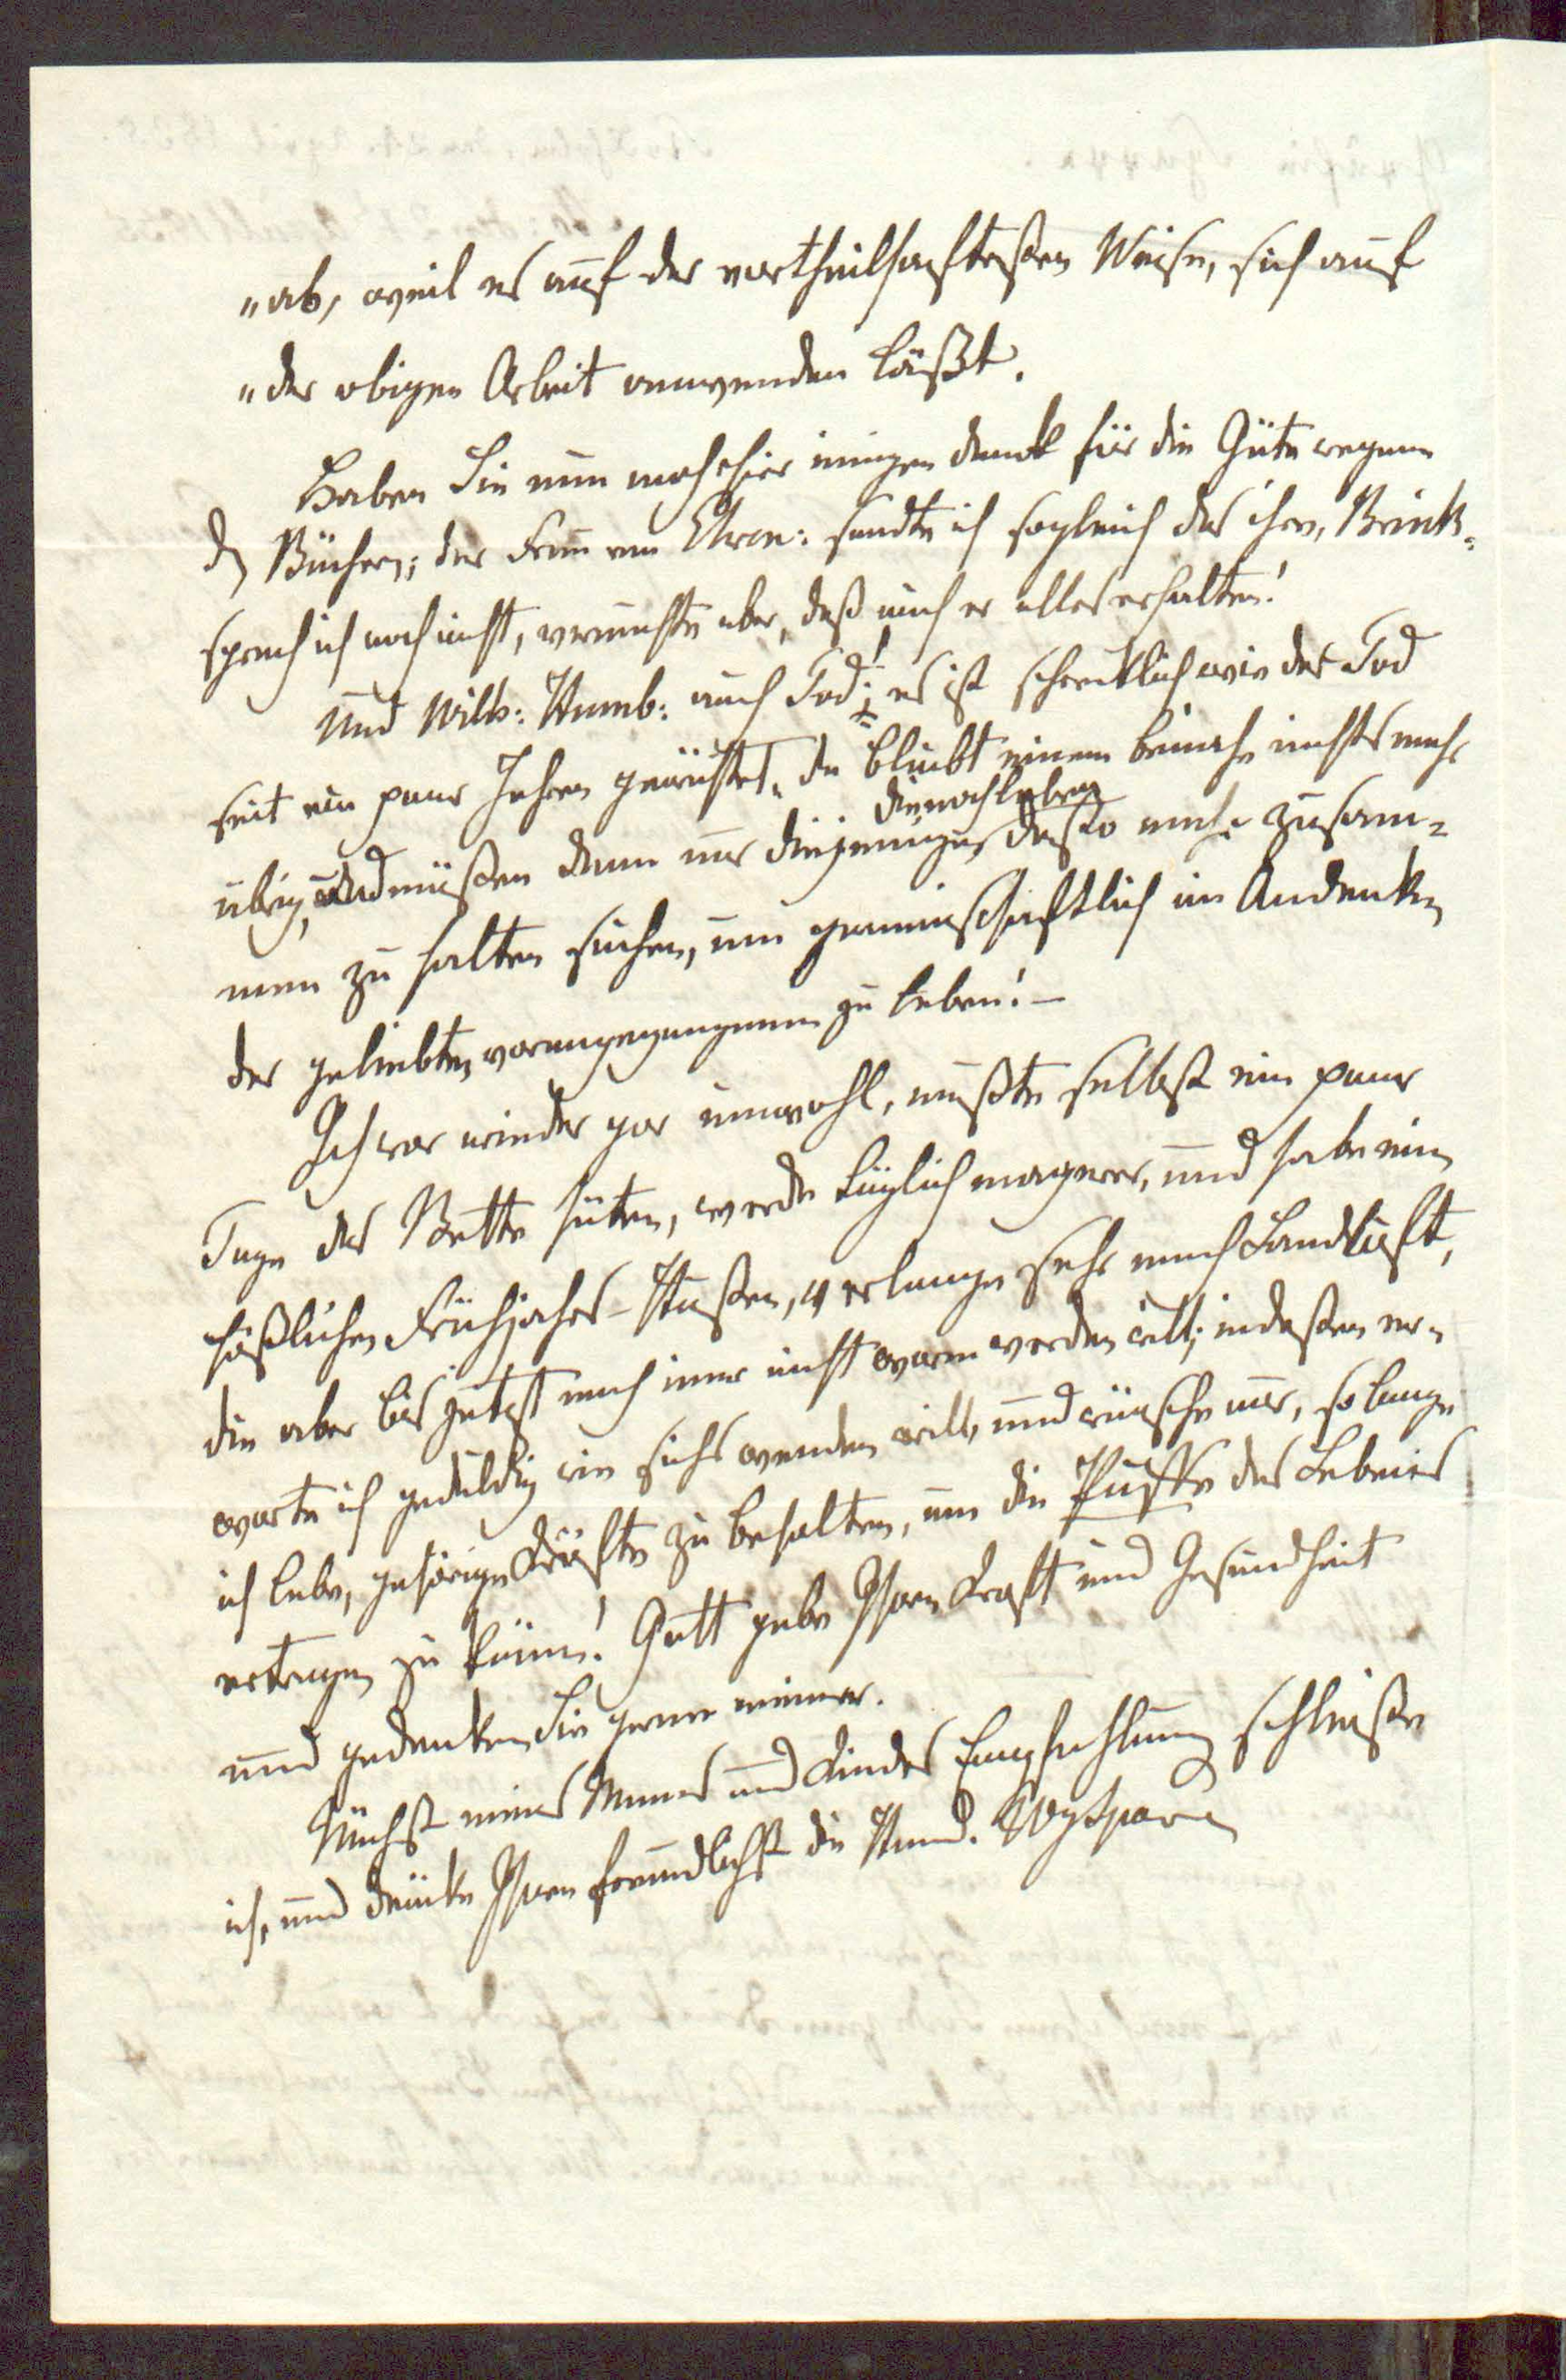 „ab, weil es auf der vortheilhaftesten Weise, sich auf
„der obigen Arbeit anwenden läßt.
Haben Sie nun noch hier innigen dank für die Güte wegen
d Bücher; der Frau von Ehren: sandte ich sogleich das ihre, Brink-
sprach ich noch nicht, vermuthe aber, daß auch er alles erhalten!
Und Wilh: Humb: auch Tod!; es ist schrecklich wie der Tod
seit ein paar Jahren gewüthet. da bleibt einem beinahe nichts mehr
die noch leben
übrig, und müßen denn nur diejenigen desto mehr zusam-
men zu halten suchen, um gemeinschaftlich im Andenken
der geliebten vorangegangenen zu leben! –
Ich war wieder gar unwohl, mußte selbst ein paar
Tage das Bette hüten, werde täglich magerer, und habe ein
häßlichen Frühjahrs-Husten, verlange sehr nach Landluft,
die aber bis jetzt noch imer nicht warm werden will; indessen er-
warte ich geduldig wie sichs wenden will, und wünsche nur, so lange
ich lebe, gehörige Kräfte zu behalten, um die Püffe des Lebens
ertragen zu könen! Gott gebe Ihnen Kraft und Gesundheit
und gedenken Sie gerne meiner.
Nächst meines Mannes und Kindes Empfehlung schließe
ich, und drücke Ihnen freundlichst die Hand. WySparre